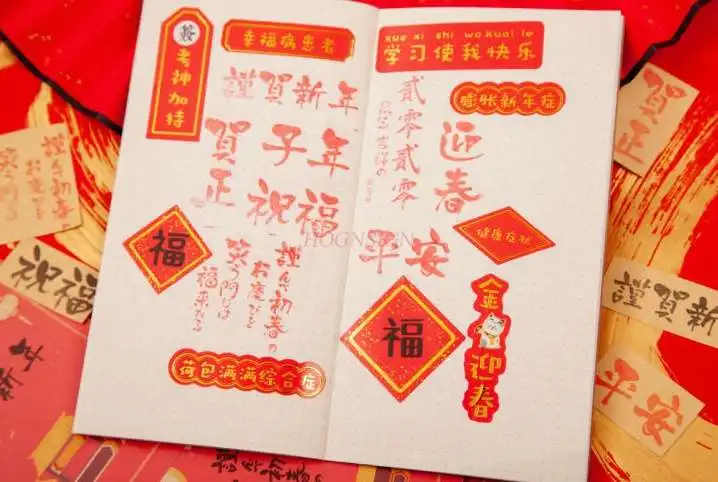 签
考神加持
幸福病患者
謹賀新年
賀正
子年
祝福
福
謹んで初春の
お慶びを
笑う門は
福来たる
荷包满满综合症
xue xi shi wo kuai le
学习使我快乐
貳零貳零
膨胀新年症
迎春
平安
健康症状
福
金
迎春
賀正
謹んで初春
お慶びを
笑う門
祝福
謹賀新
平安
謹んで初春の
HOGNSIGN